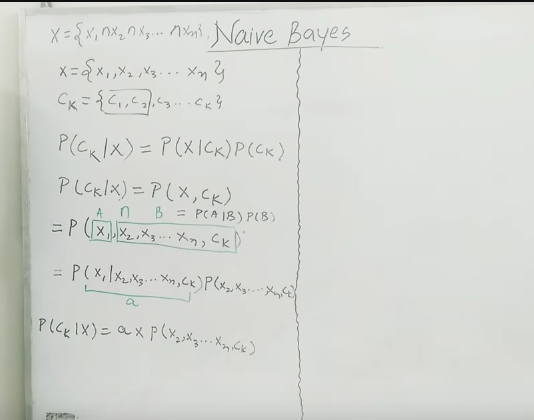 X = {x₁ ∩ x₂ ∩ x₃ ... ∩ xₙ}
Naive Bayes
X = {x₁, x₂, x₃ ... xₙ}
Cₖ = {C₁, C₂, C₃ ... Cₖ}
P(Cₖ|X) = P(X|Cₖ) P(Cₖ)
P(Cₖ|X) = P(X, Cₖ)
A ∩ B = P(A|B) P(B)
= P(x₁, x₂, x₃ ... xₙ, Cₖ)
= P(x₁|x₂, x₃ ... xₙ, Cₖ) P(x₂, x₃ ... xₙ, Cₖ)
a
P(Cₖ|X) = a x P(x₂, x₃ ... xₙ, Cₖ)